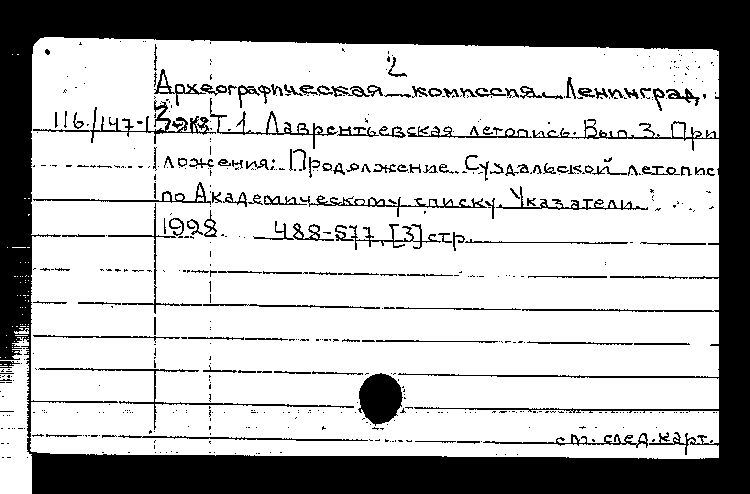 2
Археографическая комиссия. Ленинград.
116/147-1 3 экз Т. 1. Лаврентьевская летопись. Вып. 3. При
ложения: Продолжение Суздальской летопис
по Академическому списку. Указатели.
1928 488-577, [3] стр.
см. след. карт.